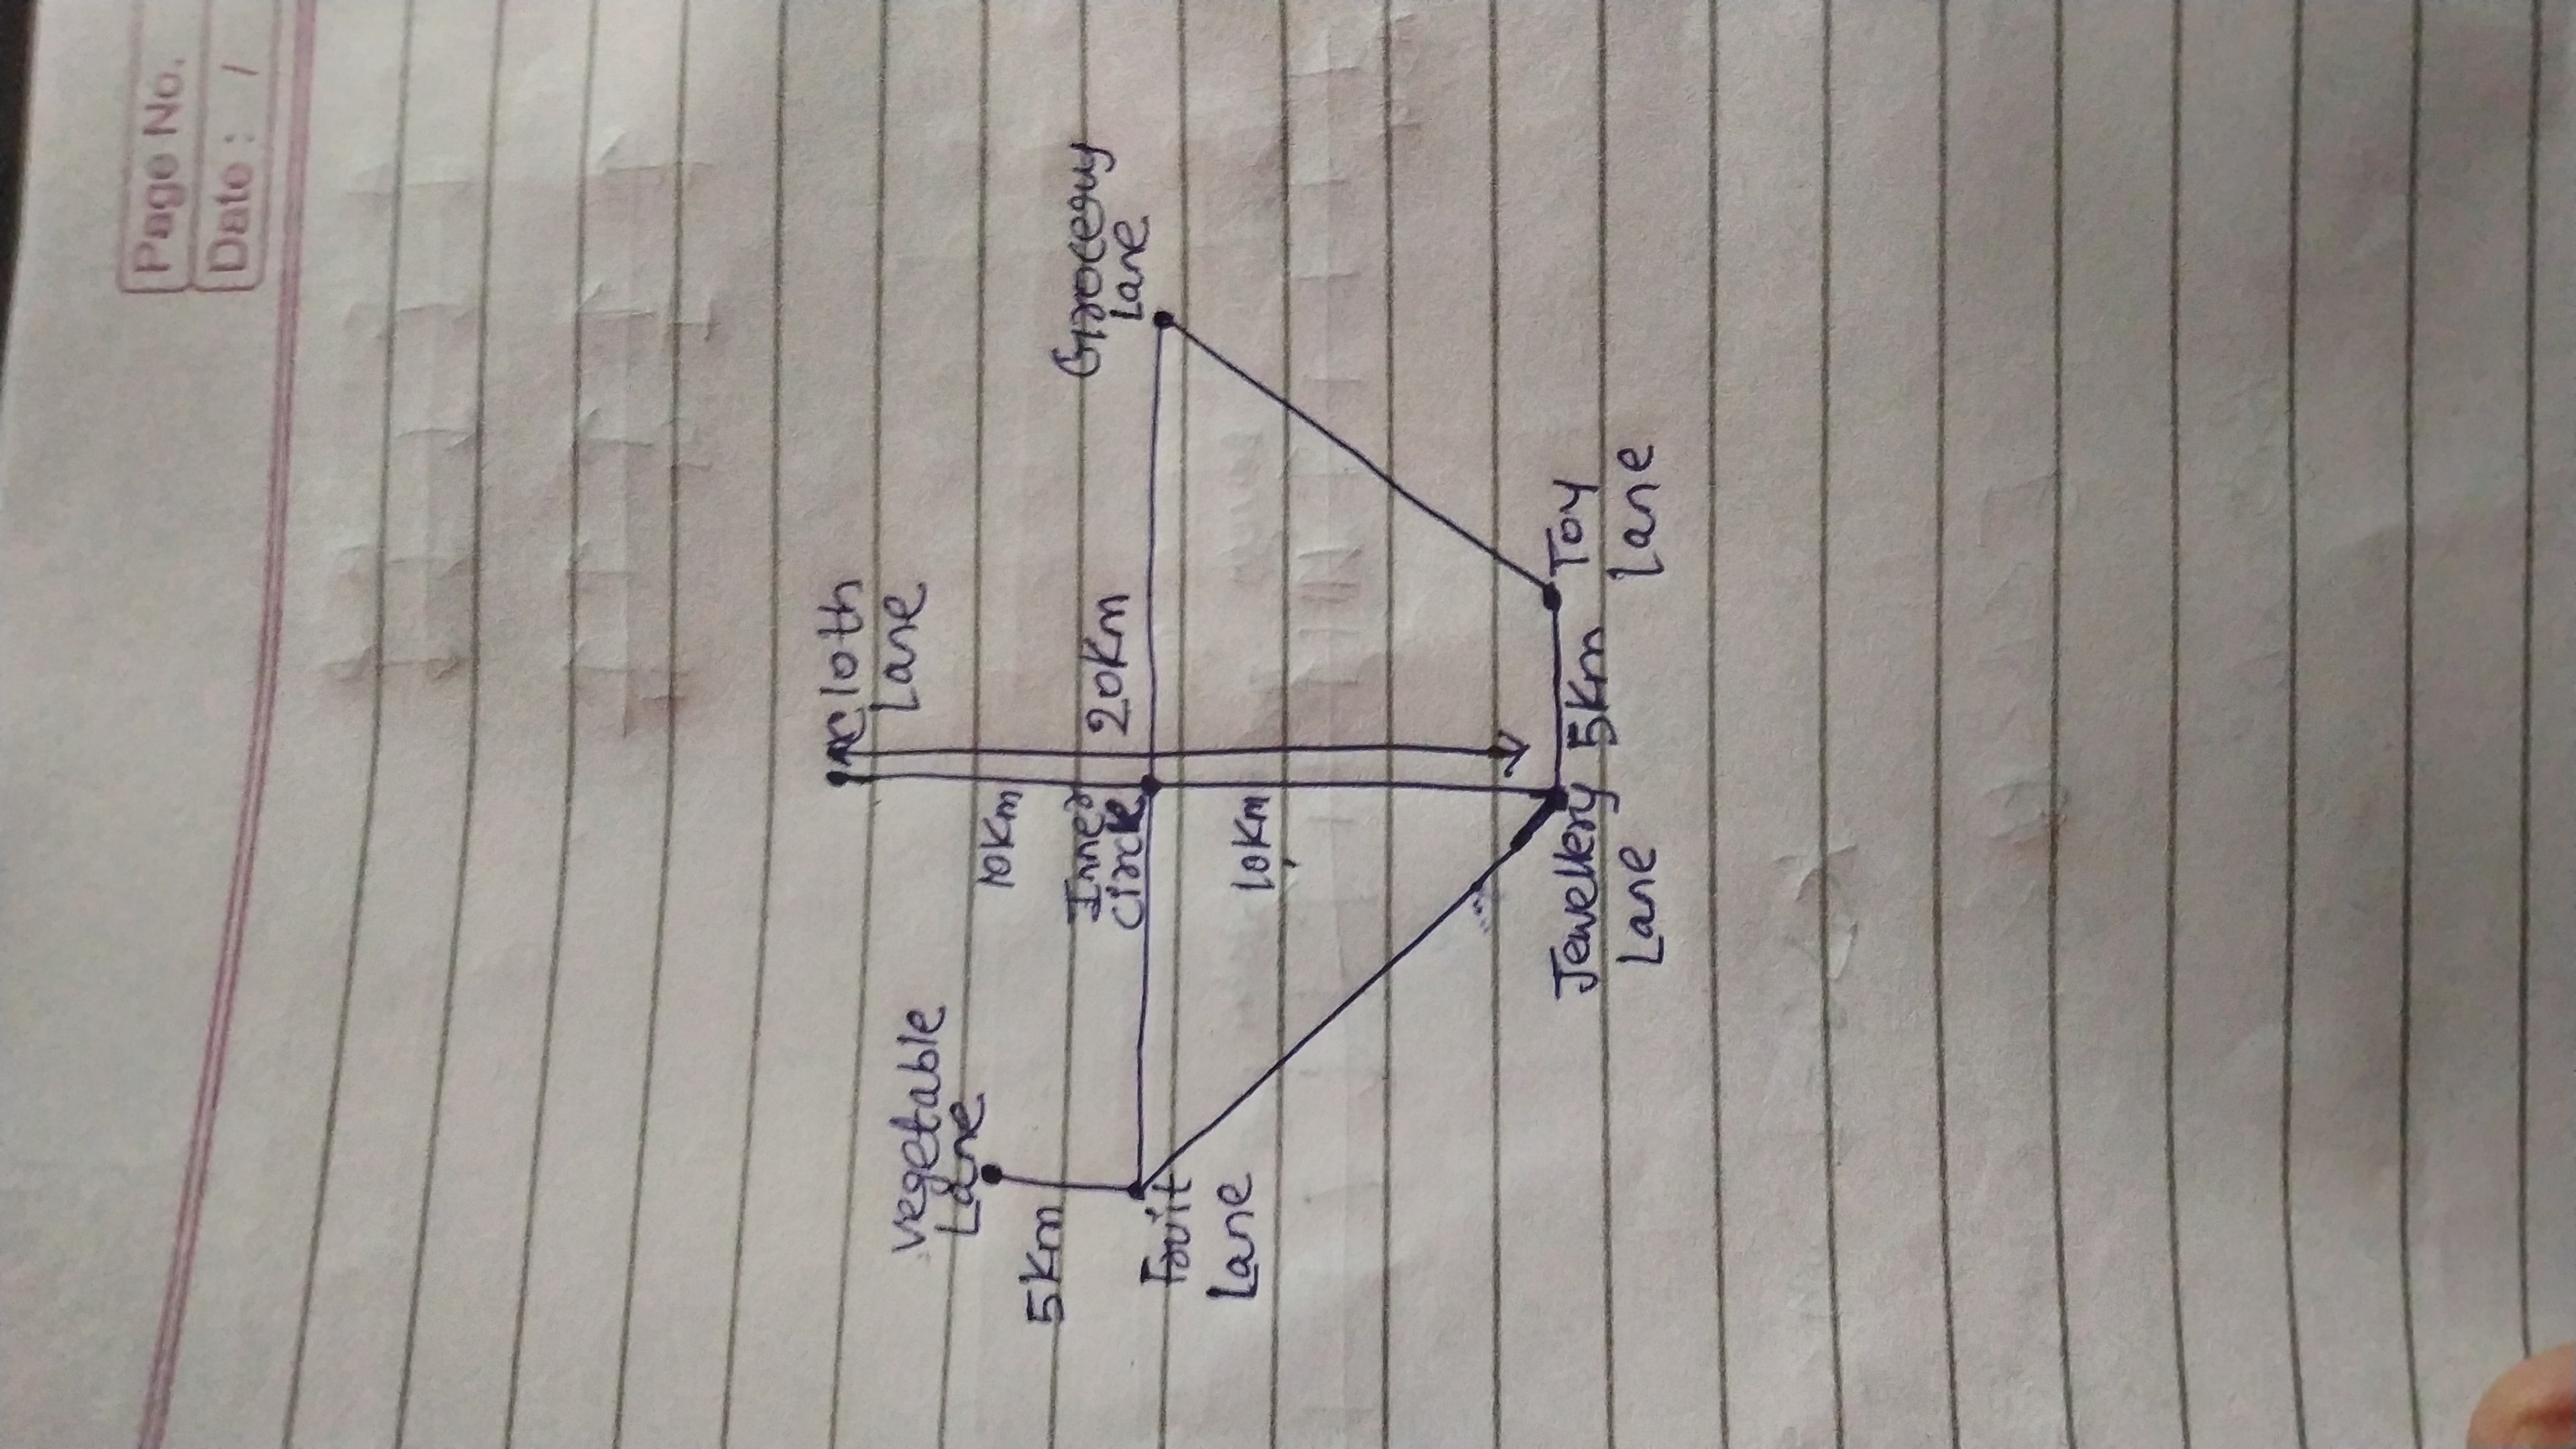 Page No.
Date : /
Cloth
Lane
Vegetable
Lane
10Km
5Km
Inner
Circle
20Km
Grocery
Lane
Fruit
Lane
10Km
Jewellery
Lane
5Km
Toy
Lane